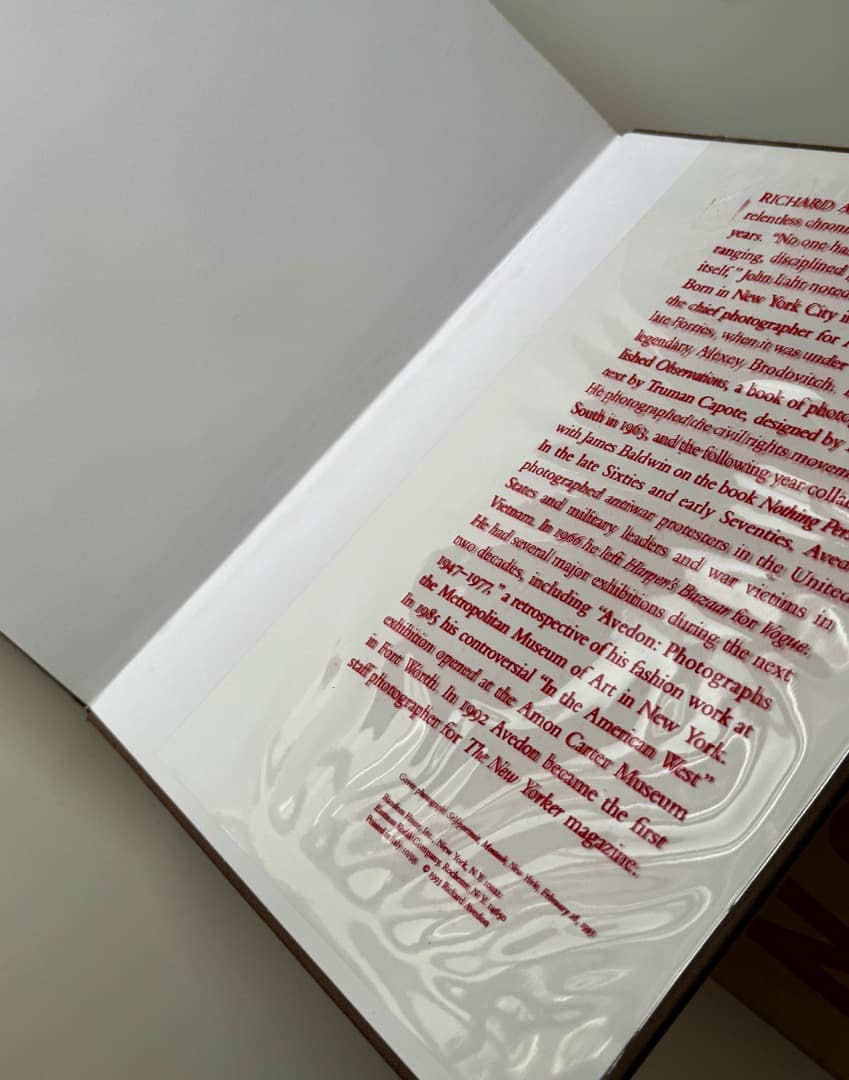 RICHARD A
relentless chron
years. "No one ha
ranging, disciplined
itself," John Lahr noted
Born in New York City i
the chief photographer for
late Forties, when it was under
legendary Alexey Brodovitch.
lished Observations, a book of photo
text by Truman Capote, designed by
He photographed the civil rights movem
South in 1963, and the following year colla
with James Baldwin on the book Nothing Pers
In the late Sixties and early Seventies, Aved
photographed antiwar protesters in the United
States and military leaders and war victims in
Vietnam. In 1966 he left Harper's Bazaar for Vogue.
He had several major exhibitions during the next
two decades, including "Avedon: Photographs
1947–1977," a retrospective of his fashion work at
the Metropolitan Museum of Art in New York.
In 1985 his controversial "In the American West"
exhibition opened at the Amon Carter Museum
in Fort Worth. In 1992 Avedon became the first
staff photographer for The New Yorker magazine.
Cover photograph: Self-portrait, Montauk, New York, February 28, 1993
Random House, Inc., New York, N.Y. 10022
Eastman Kodak Company, Rochester, N.Y. 14650
Printed in Italy 10/93 © 1993 Richard Avedon